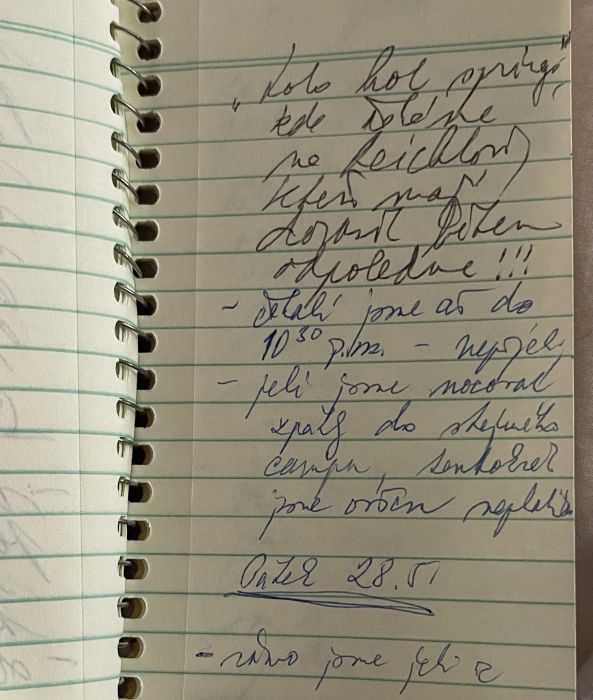 „Kolo hot springs"
kde čekáme
na Reichlovi,
kteří mají
dorazit během
odpoledne !!!
- čekali jsme až do
10³⁰ p.m. - nepřjeli,
- jeli jsme nocovat
zpátky do stejného
campu, tentokrát
jsme ovšem neplatili
Pátek 28.
- ráno jsme jeli z